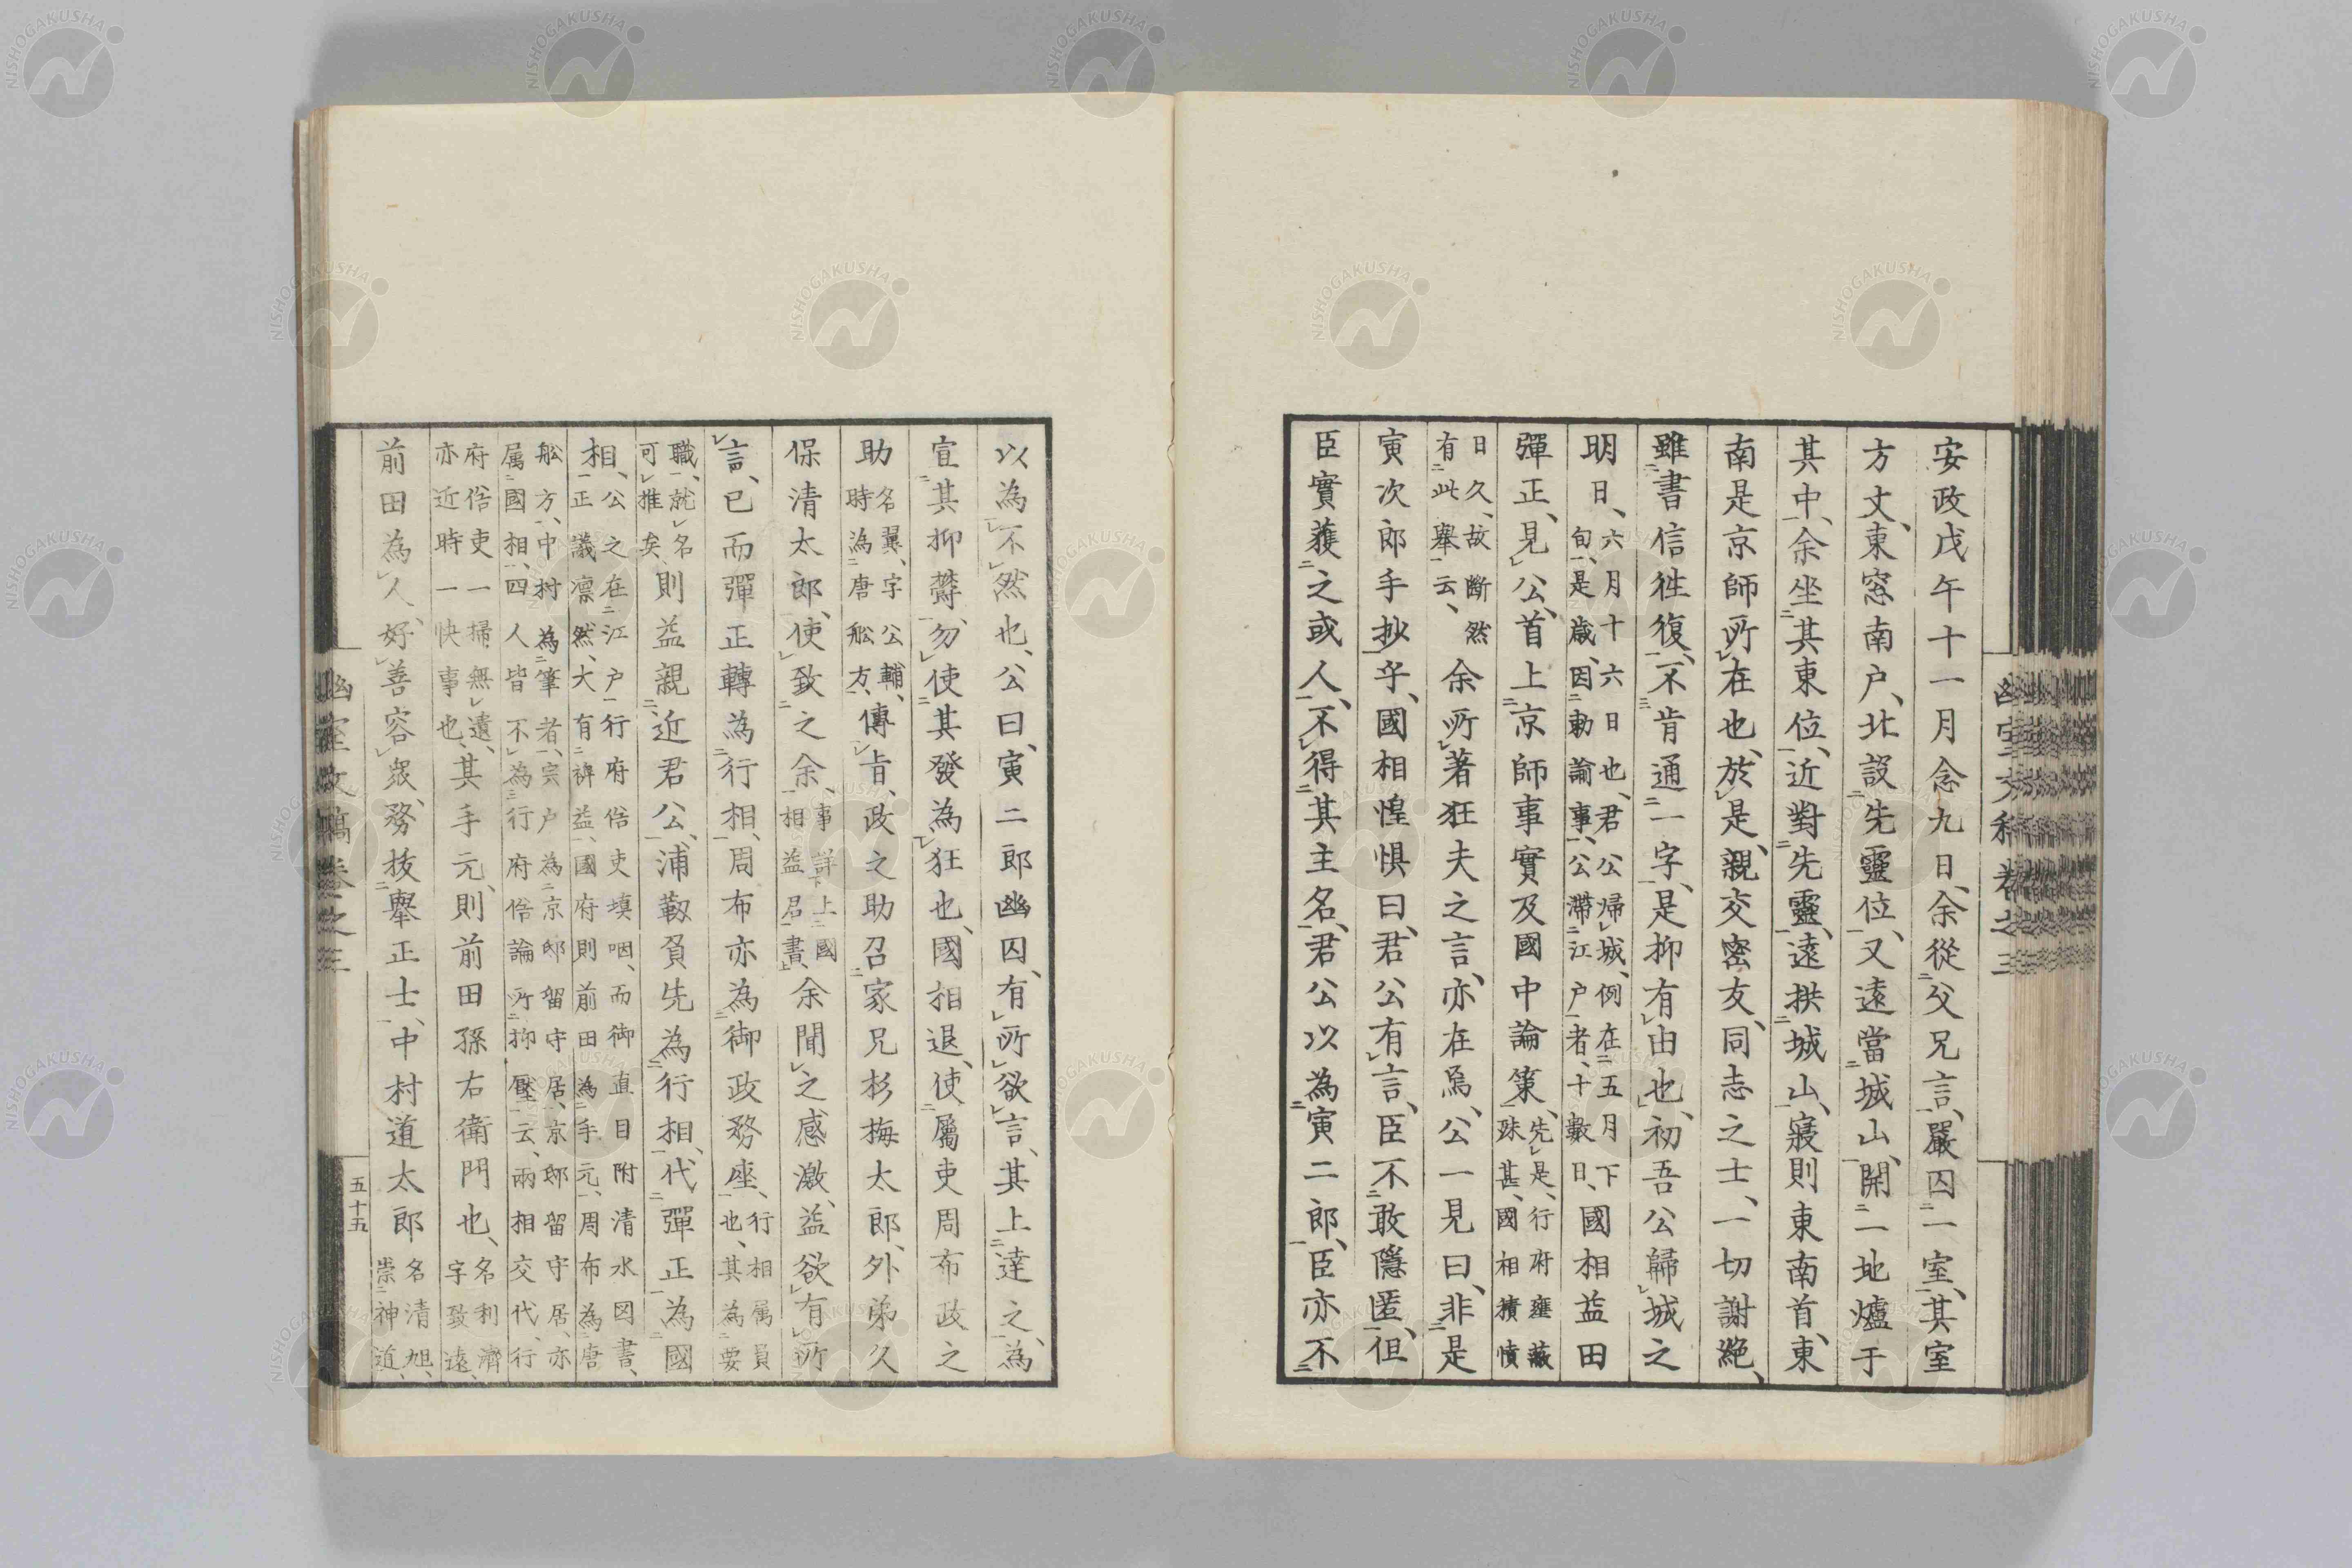 安政戊午十一月念九日、余從父兄言、嚴囚一室、其室
方丈、東窓南户、北設先靈位、又遠當城山、開一地爐于
其中、余坐其東位、近對先靈、遠拱城山、寢則東南首、東
南是京師所在也、於是、親交密友、同志之士、一切謝絶、
雖書信徃復、不肯通一字、是抑有由也、初吾公歸城之
明日、六月十六日也、君公歸城、例在五月下
旬、是歳、因勅諭事、公滯江户者、十數日、國相益田
彈正、見公、首上京師事實及國中論策、先是、行府壅蔽
殊甚、國相積憤
日久、故斷然
有此舉云、余所著狂夫之言、亦在焉、公一見曰、非是
寅次郎手抄乎、國相惶惧曰、君公有言、臣不敢隱匿、但
臣實獲之或人、不得其主名、君公以為寅二郎、臣亦不
幽室文稿卷之三
以為不然也、公曰、寅二郎幽囚、有所欲言、其上達之、為
宣其抑鬱、勿使其發為狂也、國相退、使屬吏周布政之
助名翼、字公輔、
時為唐船方、傳旨、政之助召家兄杉梅太郎、外弟久
保清太郎、使致之余、事詳上國
相益君書、余聞之感激、益欲有所
言、已而彈正轉為行相、周布亦為御政務座、行相属員
也、其為要
職、就名
可推矣、則益親近君公、浦靱負先為行相、代彈正為國
相、公之在江户行府俗吏填咽、而御直目附清水図書、
正議凛然、大有裨益、國府則前田為手元、周布為唐
船方、中村為筆者、宍户為京邸留守居、京邸留守居、亦
属國相、四人皆不為行府俗論所抑壓云、兩相交代、行
府俗吏一掃無遺、
亦近時一快事也、其手元、則前田孫右衛門也、名利濟
字致遠、
前田為人、好善容衆、務抜舉正士、中村道太郎名清旭、
崇神道、
幽室文稿卷之三
五十五